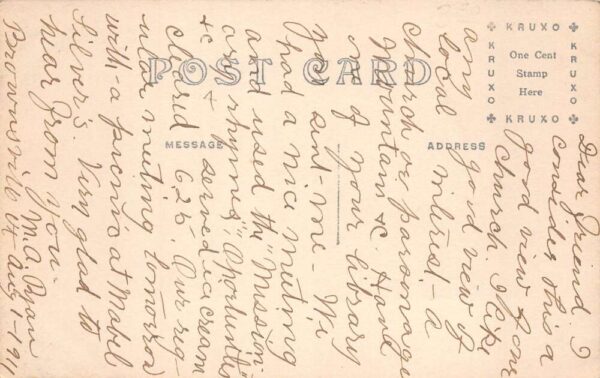 POST CARD
MESSAGE
ADDRESS
KRUXO
KRUXO
KRUXO
KRUXO
One Cent
Stamp
Here
Dear Friend I
consider this a
good view of our
Church. I like
any good view of
local interest - a
church or parsonage
Mountains &c Have
one of your library
you sent me - We
had a nice meeting
and used the "Mission
ary rhymes", "Oportunities
&c & served ice cream
cleared 6 25. Our reg-
ular meeting tomorrow
with a picnic at Mabel
Silver's. Very glad to
hear from you.
M. A. Ryan
Brownsville Vt Aug 1-1911